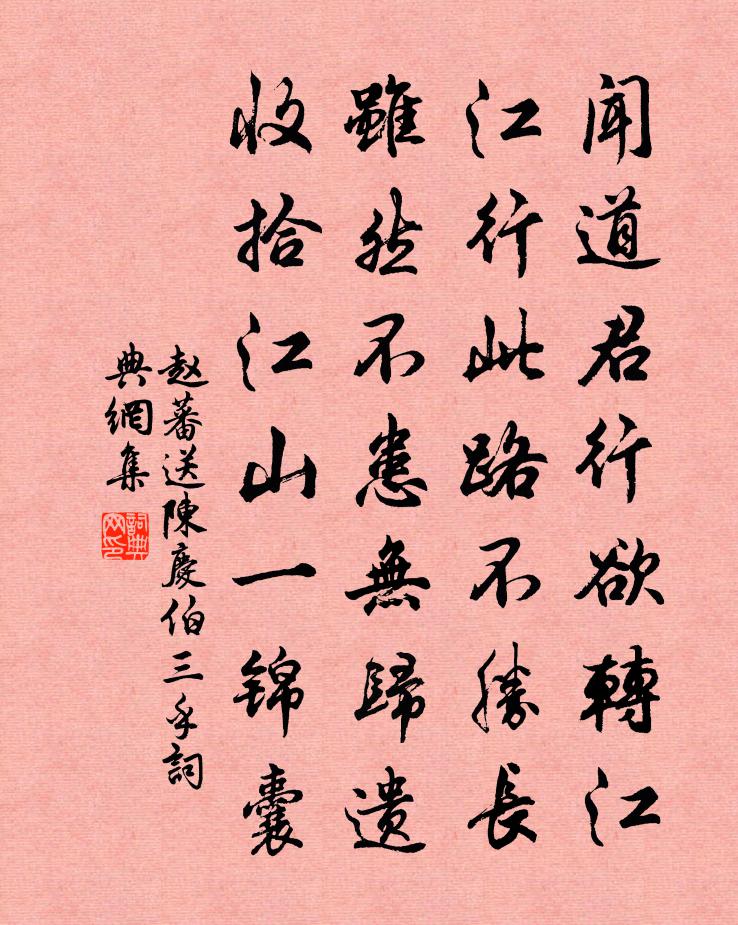 聞道君行欲轉江
江行此路不勝長
雖然不患無歸遺
收拾江山一錦囊
赵蕃送陳慶伯三手詞
典網集
詞典網印